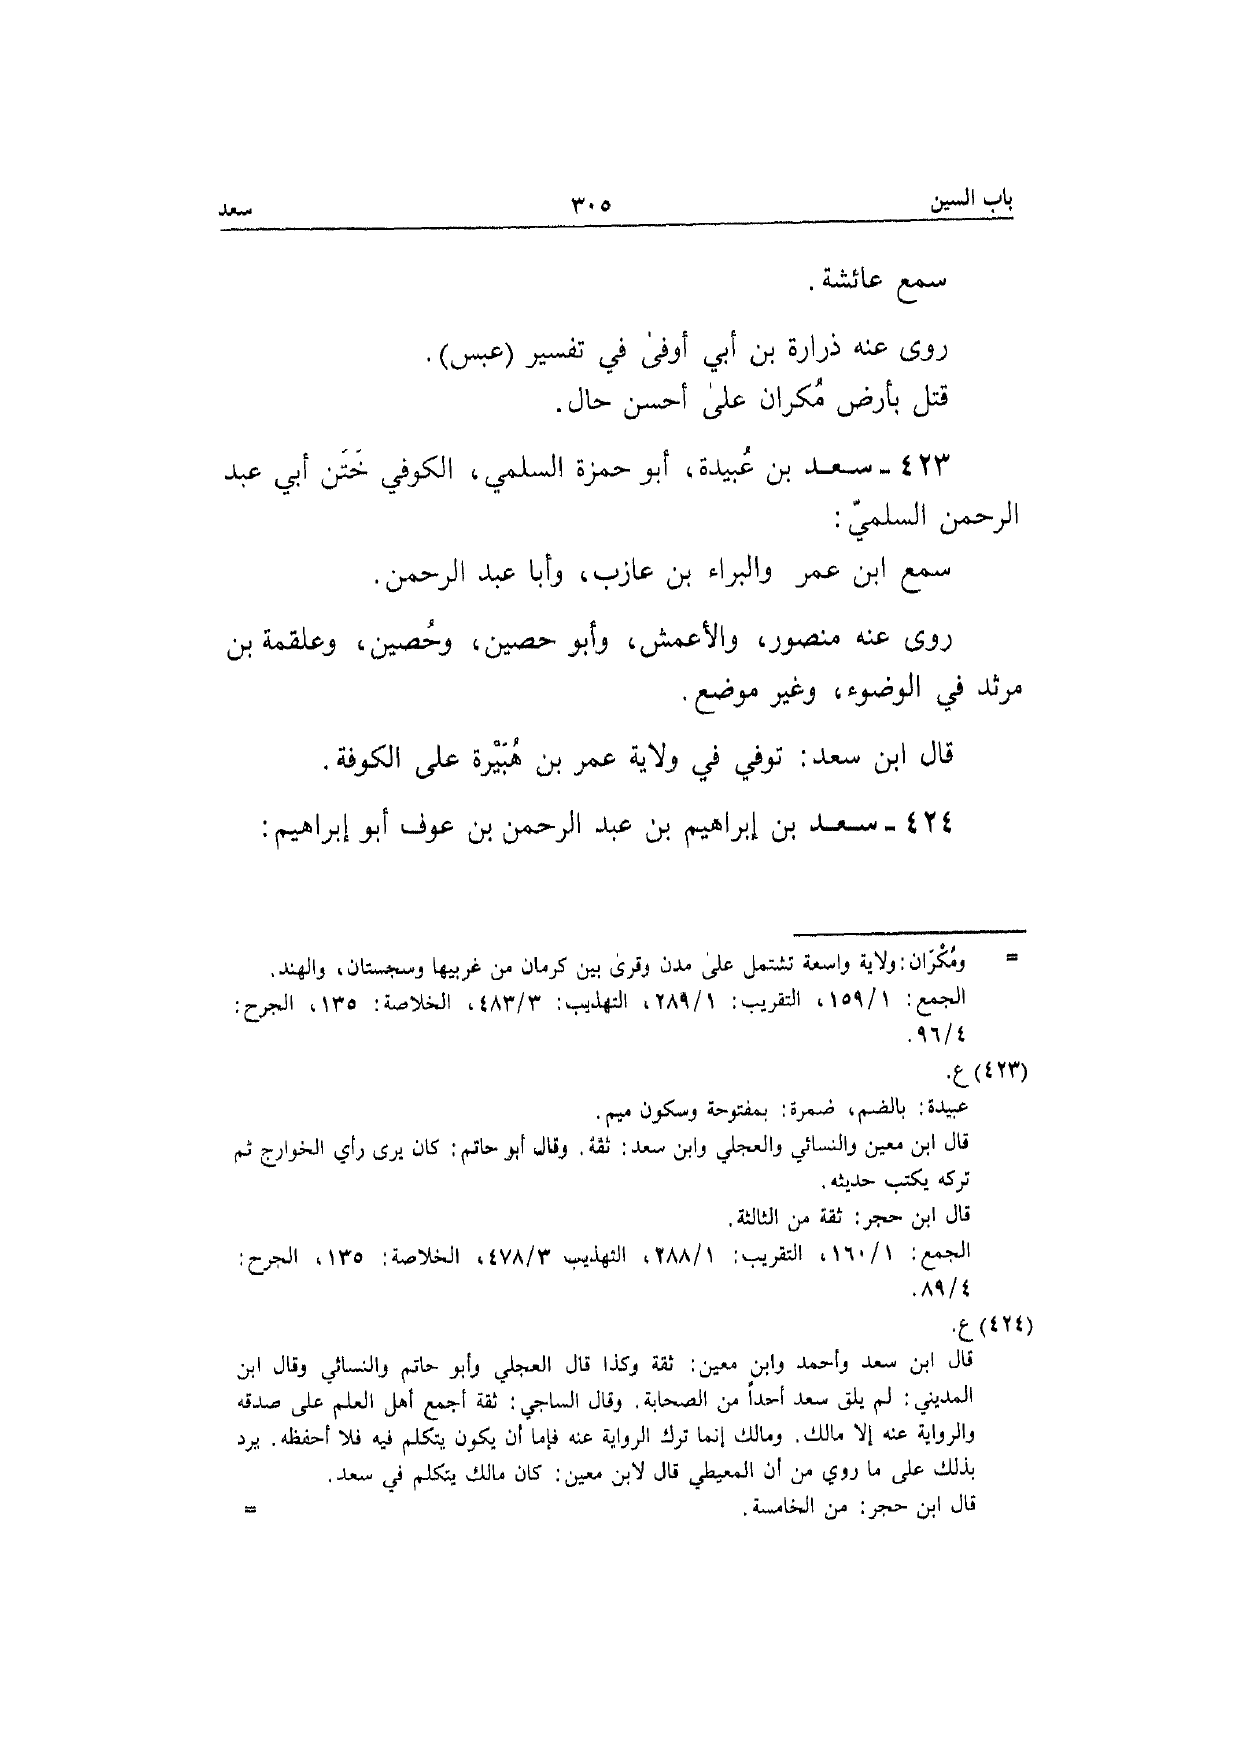 باب السين ٣٠٥ سعد
سمع عائشة .
روى عنه ذرارة بن أبي أوفىٰ في تفسير (عبس).
قتل بأرض مُكران علىٰ أحسن حال.
٤٢٣ ـ سعد بن عُبيدة، أبو حمزة السلمي، الكوفي خَتَن أبي عبد
الرحمن السلميّ:
سمع ابن عمر والبراء بن عازب، وأبا عبد الرحمن.
روى عنه منصور، والأعمش، وأبو حصين، وحُصين، وعلقمة بن
مرثد في الوضوء، وغير موضع.
قال ابن سعد: توفي في ولاية عمر بن هُبَيْرة على الكوفة.
٤٢٤ ـ سعد بن إبراهيم بن عبد الرحمن بن عوف أبو إبراهيم:
= ومُكْرّان: ولاية واسعة تشتمل علىٰ مدن وقرىٰ بين كرمان من غربيها وسجستان، والهند.
الجمع: ١/١٥٩، التقريب: ١/٢٨٩، التهذيب: ٣/٤٨٣، الخلاصة: ١٣٥، الجرح:
٤/٩٦.
(٤٢٣) ع.
عبيدة: بالضم، ضمرة: بمفتوحة وسكون ميم.
قال ابن معين والنسائي والعجلي وابن سعد: ثقة. وقال أبو حاتم: كان يرى رأي الخوارج ثم
تركه يكتب حديثه.
قال ابن حجر: ثقة من الثالثة.
الجمع: ١/١٦٠، التقريب: ١/٢٨٨، التهذيب ٣/٤٧٨، الخلاصة: ١٣٥، الجرح:
٤/٨٩.
(٤٢٤) ع.
قال ابن سعد وأحمد وابن معين: ثقة وكذا قال العجلي وأبو حاتم والنسائي وقال ابن
المديني: لم يلق سعد أحداً من الصحابة. وقال الساجي: ثقة أجمع أهل العلم على صدقه
والرواية عنه إلا مالك. ومالك إنما ترك الرواية عنه فإما أن يكون يتكلم فيه فلا أحفظه. يرد
بذلك على ما روي من أن المعيطي قال لابن معين: كان مالك يتكلم في سعد.
قال ابن حجر: من الخامسة. =